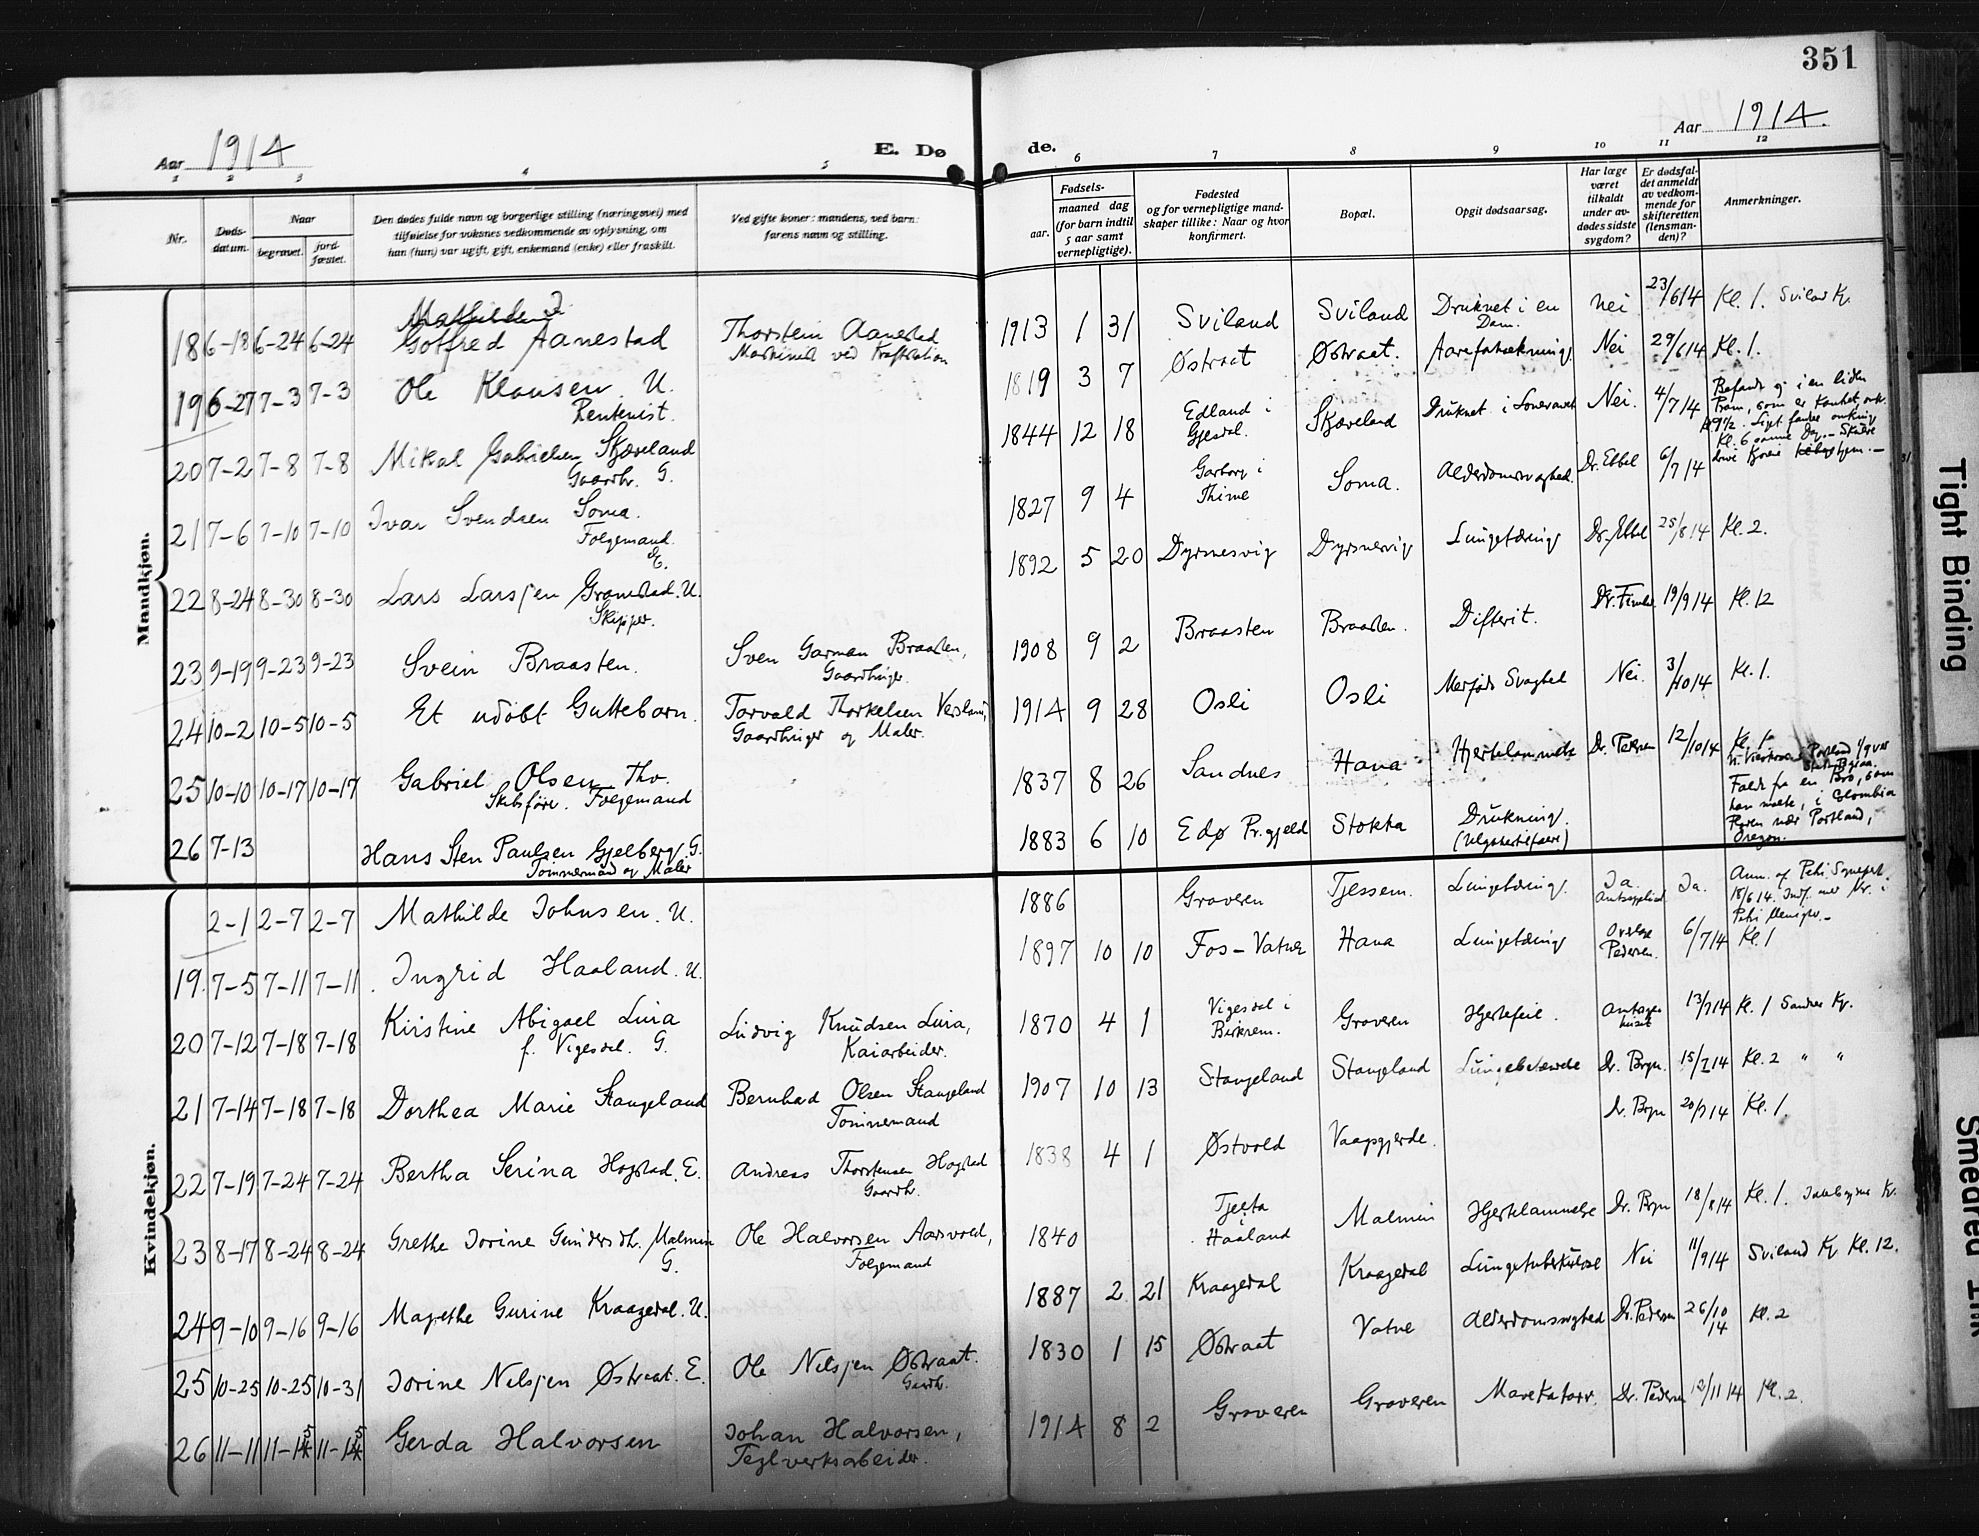 351
Aar 1914
E. Dø
de.
Aar 1914.
1 2 3 4 5 6 7 8 9 10 11 12
Nr.
Døds-
datum.
Naar
begravet.
jord-
fæstet.
Den dødes fulde navn og borgerlige stilling (næringsvei) med
tilføielse for voksnes vedkommende av oplysning, om
han (hun) var ugift, gift, enkemand (enke) eller fraskilt.
Ved gifte koner: mandens, ved barn:
farens navn og stilling.
Fødsels-
aar.
maaned dag
(for barn indtil
5 aar samt
vernepligtige).
Fødested
og for vernepligtige mand-
skaper tillike: Naar og hvor
konfirmert.
Bopæl.
Opgit dødsaarsag.
Har læge
været
tilkaldt
under av-
dødes sidste
sygdom?
Er dødsfal-
det anmeldt
av vedkom-
mende for
skifteretten
(lensman-
den)?
Anmerkninger.
Mandkjøn.
18 6-18 6-24 6-24 Gotfred Aanestad Thorstein Aanestad
1913 1 31 Sviland Sviland Druknet i en
Dam. Nei 23/6 14 Kl. 1.
19 6-27 7-3 7-3 Ole Klausen U.
Rentenist.
1819 3 7 Østraat Østraat. Nei 29/6 14 Kl. 1.
20 7-2 7-8 7-8 Mikal Gabrielsen Skjæveland
Gaardbr. G.
1844 12 18 Edland i
Gjesdal. Skjæveland Druknet i Nei. 4/7 14
21 7-6 7-10 7-10 Ivar Svendsen Soma.
Folgemand.
E.
1827 9 4 Garborg i
Thime Soma. Alderdomssvaghed. Dr. Ebbel 6/7 14
22 8-24 8-30 8-30 Lars Larsen Gramstad. U.
Skipper.
1892 5 20 Dyrsnesvig Dyrsnesvig Lungetæring Dr. Ebbel 25/8 14 Kl. 2.
23 9-19 9-23 9-23 Svein Braasten. Sven Garman Braasten,
Gaardbruger.
1908 9 2 Braasten Braasten. Difterit. 19/9 14 Kl. 12
24 10-2 10-5 10-5 Et udøbt Guttebarn. Torvald Thorkelsen
Gaardbruger og Maler.
1914 9 28 Osli Osli Medfødt Svaghet Nei. 3/10 14 Kl. 1.
25 10-10 10-17 10-17 Gabriel Olsen Thv.
Skibsfører. Folgemand
1837 8 26 Sandnes Hana Hjertelammelse Dr. Pedersen 12/10 14
26 7-13 Hans Sten Paulsen Gjelberg. G.
Tømmermand og Maler
1883 6 10 Edø Pr.gjeld Stokka Drukning.
Faldt fra en Bro, som
han malte, i Colombia
nær Portland,
Oregon.
Kvindekjøn.
2-1 2-7 2-7 Mathilde Johnsen. U.
1886 Graveren Tjessem. Lungetæring. Ja. Ja.
19. 7-5 7-11 7-11 Ingrid Haaland. U.
1897 10 10 Fos-Vatne Hana Lungetæring Pedersen. 6/7 14 Kl. 1
20 7-12 7-18 7-18 Kirstine Abigael Lura
f. Vigesdal. G. Ludvig Knudsen Lura,
Kaiarbeider.
1870 4 1 Vigesdal i
Birkrem. Graveren Hjertefeil. 13/7 14 Kl. 1 Sandnes Kg.
21 7-14 7-18 7-18 Dorthea Marie Stangeland Bernhard Olsen Stangeland
Tømmemand
1907 10 13 Stangeland Stangeland Dr. Bryn. 15/7 14 Kl. 2 " "
22 7-19 7-24 7-24 Bertha Serina Hogstad. E. Andreas Thorstensen Hogstad
Gaardbr.
1838 4 1 Østvold Dr. Bryn 20/7 14 Kl. 1.
23 8-17 8-24 8-24 Grethe Jorine Gundersdtr. Malmin
G. Ole Halvorsen Aarsvold,
Folgemand
1840 Tjelta
i
Haaland Malmin Hjertelammelse Dr. Bryn 18/8 14 Kl. 1.
24 9-10 9-16 9-16 Magrethe Gurine Kraagedal. U.
1887 2 21 Kraagedal Kraagedal Lungetuberkulose Nei 11/9 14 Sviland Kg Kl. 12.
25 10-25 10-25 10-31 Jorine Nilsjen Østraat. E. Ole Nilsjen Østraat.
Gardbr.
1830 1 15 Østraat Vatne Alderdomssvaghed Dr. Pedersen 26/10
14 Kl. 2
26 11-11 Gerda Halvorsen Johan Halvorsen,
Teglverksarbeider.
1914 8 2 Graveren Graveren Mavekatarr. Dr. Pedersen 12/11 14 Kl. 2
Tight Binding
Smeared Ink